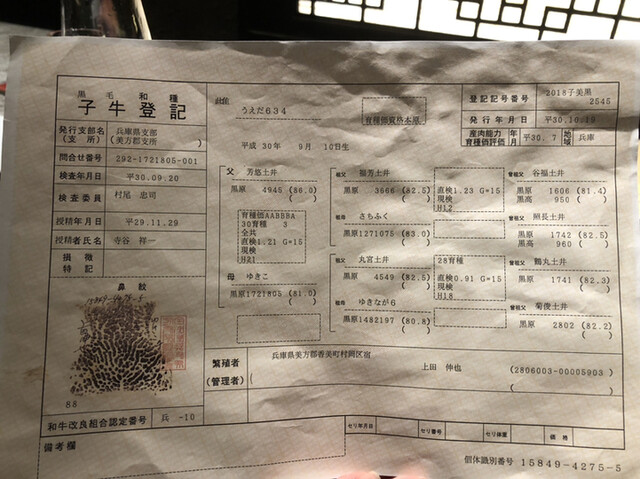 黒毛和種
子牛登記
発行支部名
(支所)
兵庫県支部
(美方郡支所 )
問合せ番号 292-1721805-001
検査年月日 平30.09.20
検査委員 村尾 忠司
授精年月日 平29.11.29
授精者氏名 寺谷 祥一
損徴
特記
鼻紋
88
和牛改良組合認定番号 兵 -10
備考欄
うえだ634
育種価資格本原
平成 30年 9月 10日生
登記記号番号 2018子美黒
2545
発行年月日
産肉能力
育種価評価
年
月
平30. 7
地
域
兵庫
父 芳悠土井
黒原 4945 (86.0)
育種価AABBBA
30育種 3
全共
直検1.21 G=15
現検
H21
母 ゆきこ
黒原1721805 (81.0)
祖父 福芳土井
黒原 3666 (82.5)
直検1.23 G=15
現検
H12
祖母 さちふく
黒原1271075 (83.0)
祖父 丸宮土井
黒原 4549 (82.5)
28育種
直検0.91 G=15
現検
H18
祖母 ゆきなが6
黒原1482197 (80.8)
曽祖父 谷福土井
黒原 1606 (81.4)
黒高 950 ( )
曽祖父 照長土井
黒原 1742 (82.5)
黒高 960 ( )
曽祖父 鶴丸土井
黒原 1741 (82.3)
曽祖父 菊俊土井
黒原 2802 (82.2)
繁殖者
(管理者)
兵庫県美方郡香美町村岡区宿
上田 伸也 (2806003-00005903 )
セリ年月日
セリ番号
セリ体重
価格
個体識別番号 15849-4275-5